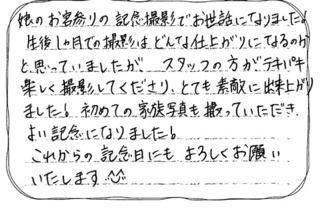 娘のお宮参りの記念撮影でお世話になりました!
生後1ヶ月での撮影はどんな仕上がりになるのか
と思っていましたが、スタッフの方がテキパキ
楽しく撮影してくださり、とても素敵に出来上がり
ました!初めての家族写真も撮っていただき
よい記念になりました!
これからの記念日にもよろしくお願い
いたします